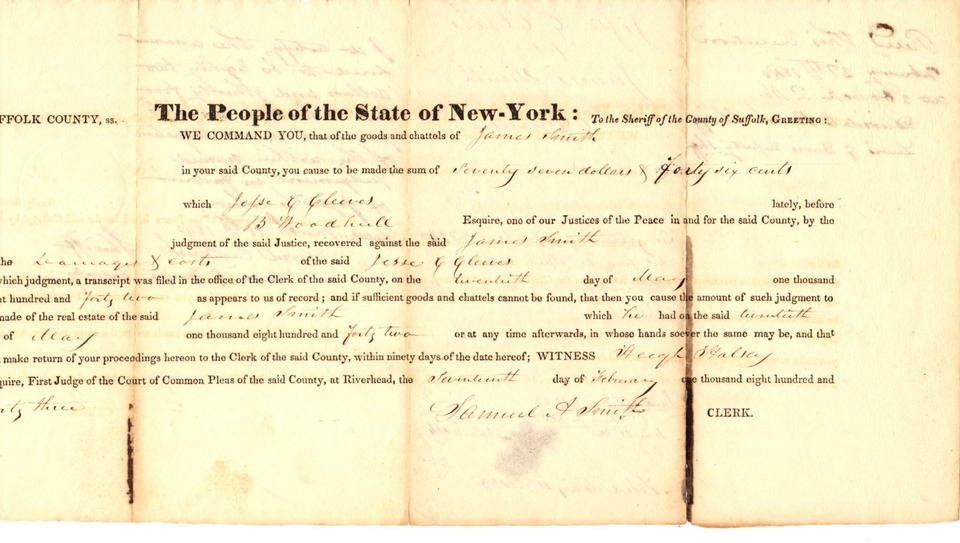 FFOLK COUNTY, ss. The People of the State of New-York: To the Sheriff of the County of Suffolk, GREETING:
WE COMMAND YOU, that of the goods and chattels of James Smith
in your said County, you cause to be made the sum of Seventy seven dollars & Forty six cents
which Jesse C Cleeves lately, before
B Woodhull Esquire, one of our Justices of the Peace in and for the said County, by the
judgment of the said Justice, recovered against the said James Smith
the Damages & costs of the said Jesse C Cleeves
which judgment, a transcript was filed in the office of the Clerk of the said County, on the twentieth day of May one thousand
ht hundred and Forty two as appears to us of record; and if sufficient goods and chattels cannot be found, that then you cause the amount of such judgment to
made of the real estate of the said James Smith which he had on the said twentieth
of May one thousand eight hundred and Forty two or at any time afterwards, in whose hands soever the same may be, and that
make return of your proceedings hereon to the Clerk of the said County, within ninety days of the date hereof; WITNESS Hugh Halsey
quire, First Judge of the Court of Common Pleas of the said County, at Riverhead, the day of February one thousand eight hundred and
rty three Samuel A Smith CLERK.